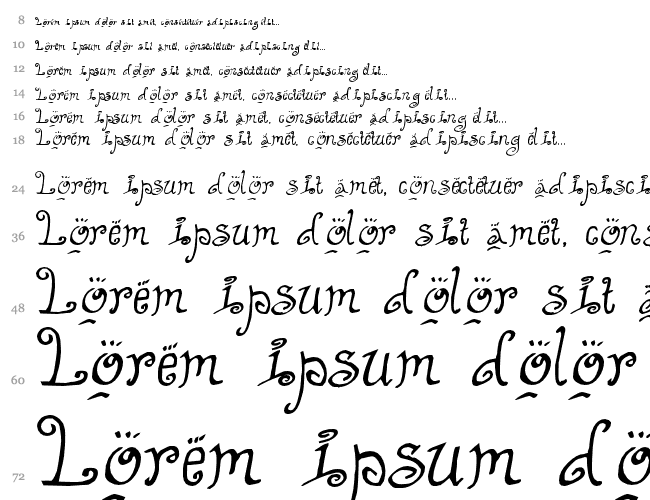 8 Lorem ipsum dolor sit amet, consectetuer adipiscing elit...
10 Lorem ipsum dolor sit amet, consectetuer adipiscing elit...
12 Lorem ipsum dolor sit amet, consectetuer adipiscing elit...
14 Lorem ipsum dolor sit amet, consectetuer adipiscing elit...
16 Lorem ipsum dolor sit amet, consectetuer adipiscing elit...
18 Lorem ipsum dolor sit amet, consectetuer adipiscing elit...
24 Lorem ipsum dolor sit amet, consectetuer adipisci
36 Lorem ipsum dolor sit amet, cons
48 Lorem ipsum dolor sit a
60 Lorem ipsum dolor
72 Lorem ipsum do